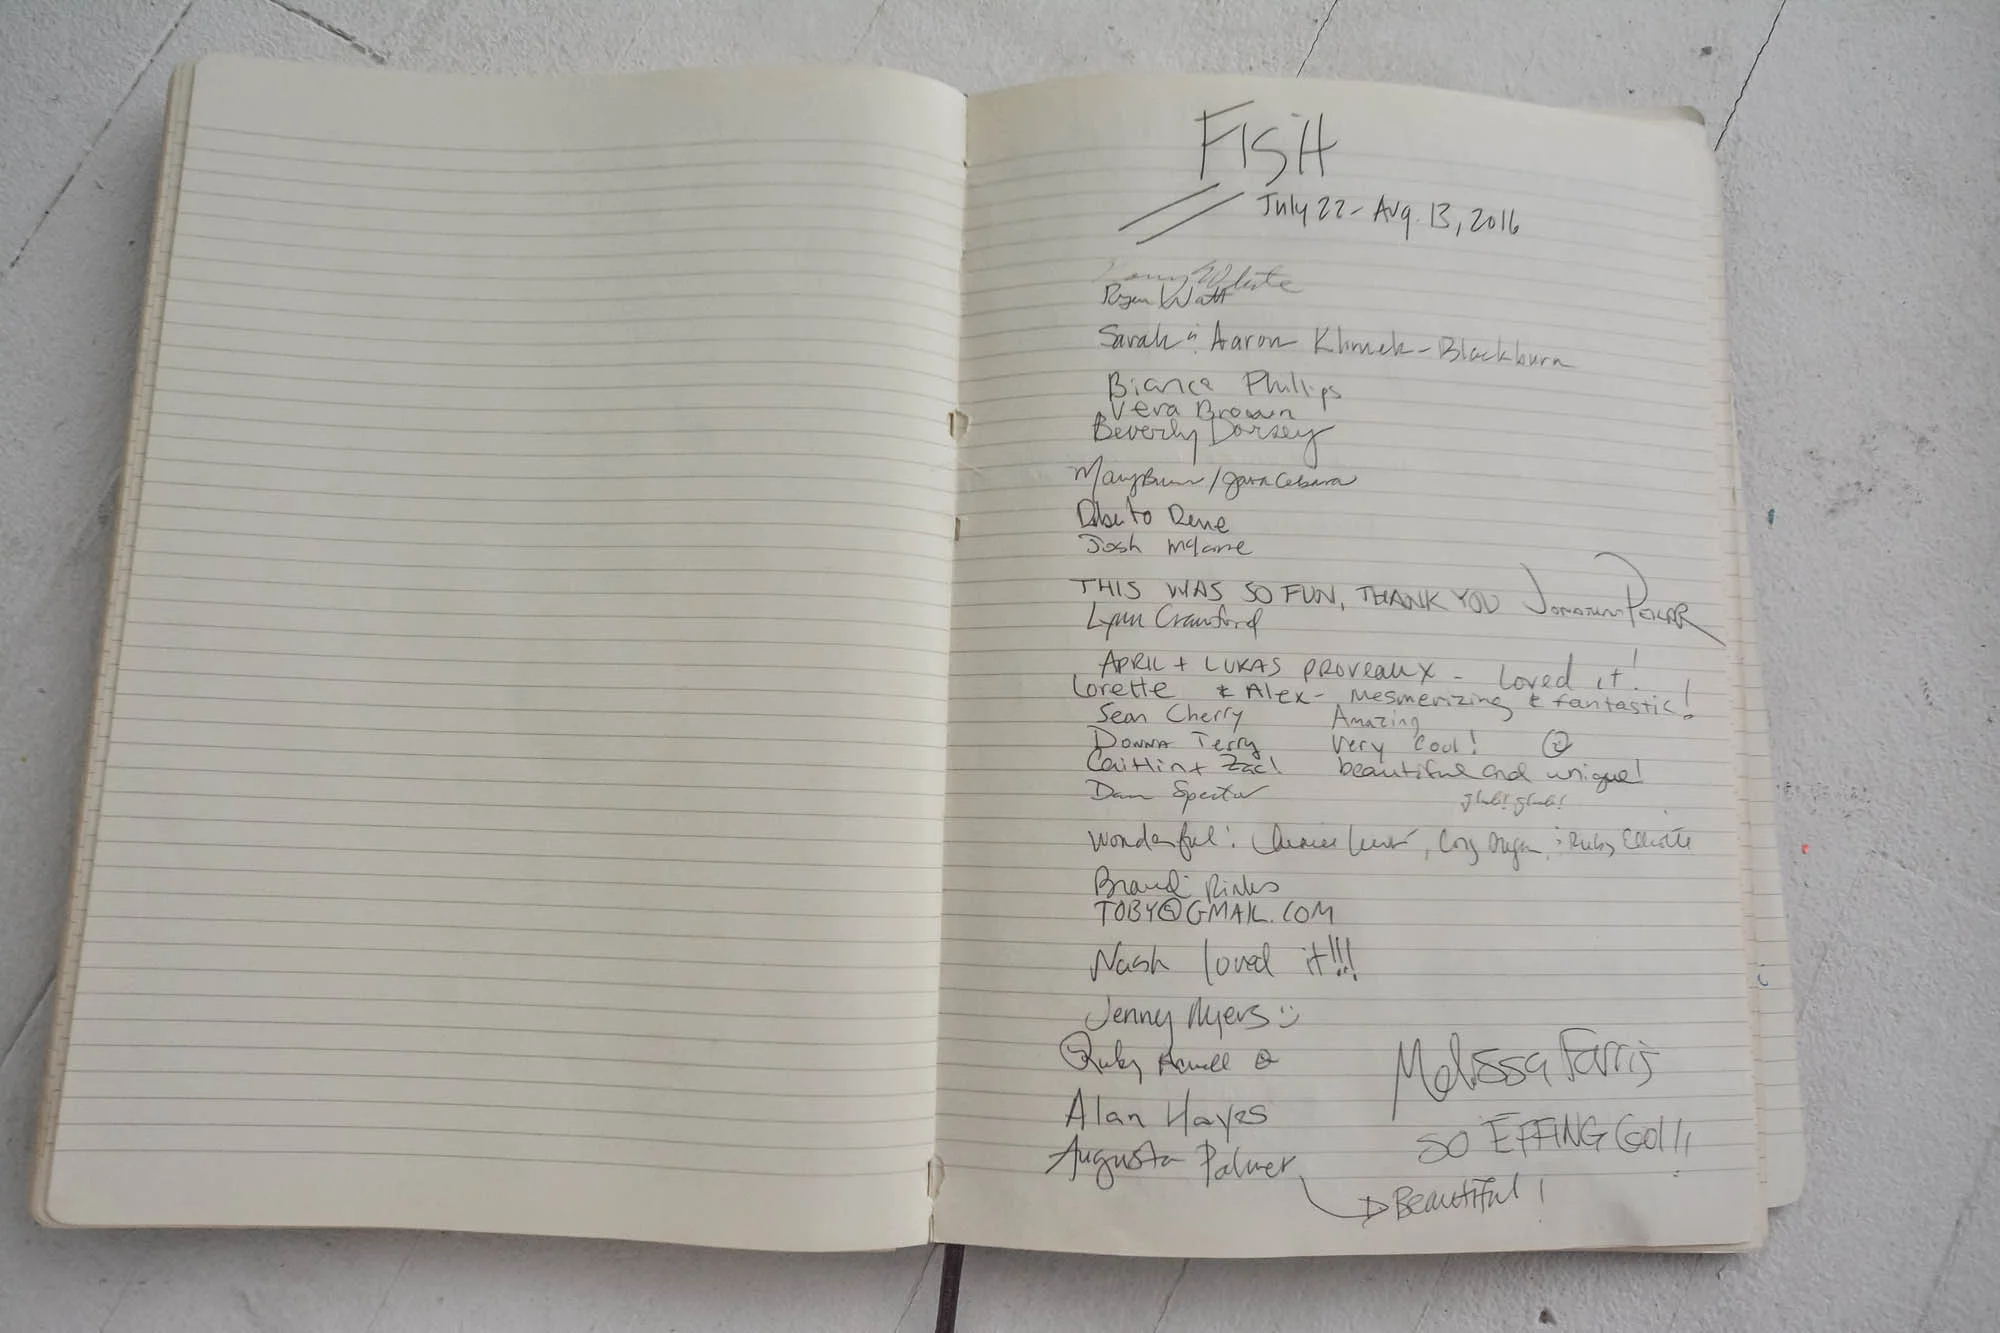 FISH
July 22 - Aug. 13, 2016
White
Ryan Watt
Sarah & Aaron Klimek-Blackburn
Bianca Phillips
Vera Brown
Beverly Dorsey
Mary
Rene
Josh McLane
THIS WAS SO FUN, THANK YOU
Lynn Crawford
APRIL + LUKAS PROVEAUX - LOVED it!
Lorette & Alex - Mesmerizing & fantastic!
Sean Cherry Amazing
Donna Terry Very Cool!
Caitlin + Zac! beautiful and unique!
Dan Spector glub! glub!
Wonderful! Ruby
Brandi Rinks
TOBY@GMAIL.COM
Nash loved it!!!
Jenny Myers :)
Ruby
Melissa Farris
Alan Hayes
SO EFFING COOL!!
Augusta Palmer
Beautiful!